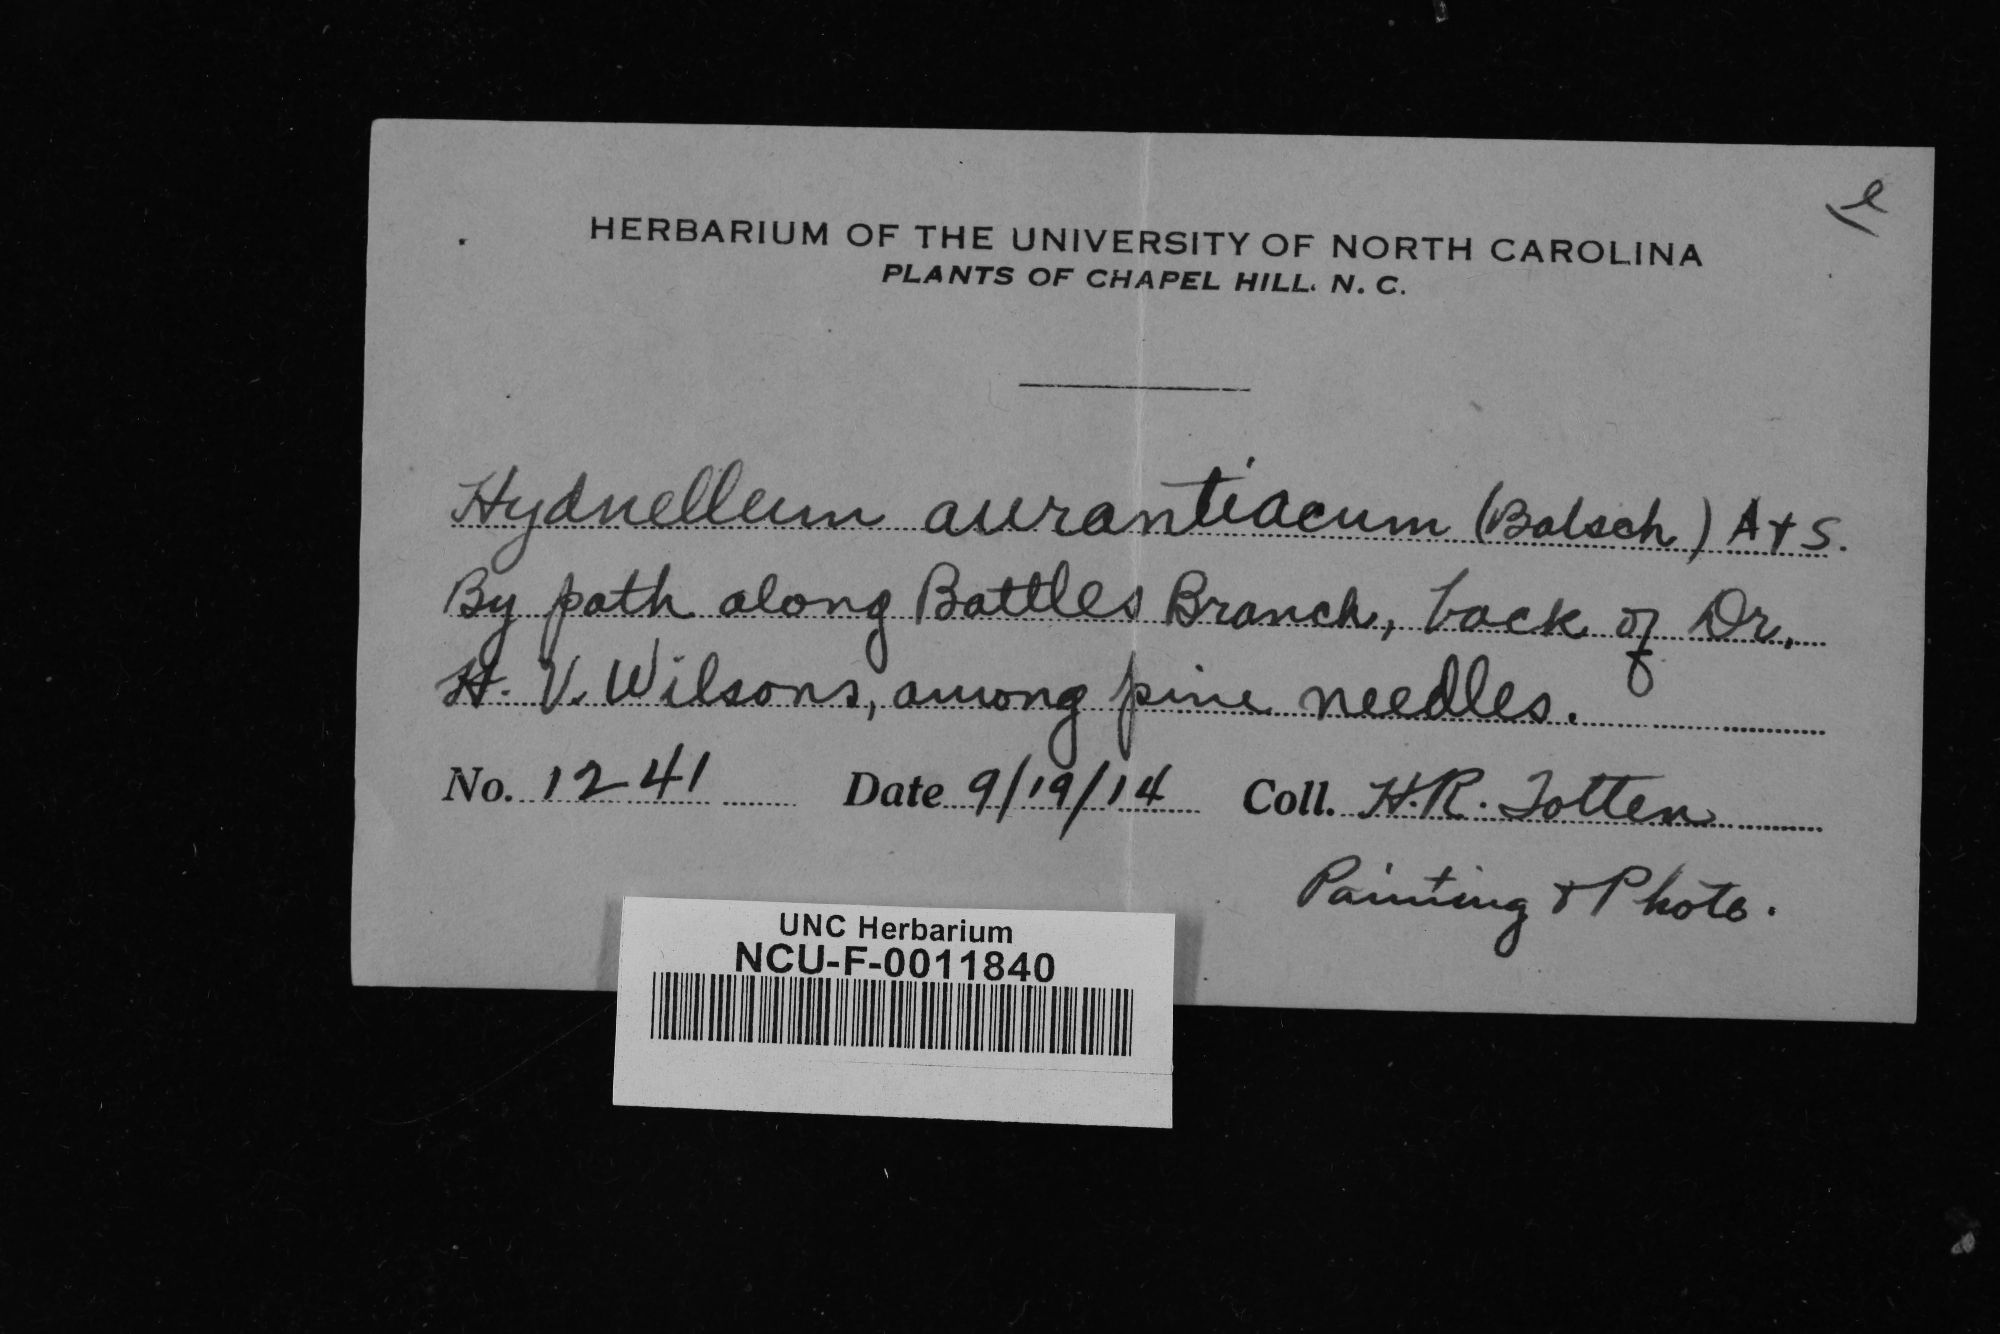 HERBARIUM OF THE UNIVERSITY OF NORTH CAROLINA
PLANTS OF CHAPEL HILL, N. C.
Hydnellum aurantiacum (Batsch) A + S.
By path along Battles Branch, back of Dr.
H. V. Wilsons, among pine needles.
No. 1241 Date 9/19/14 Coll. H.R. Totten
Painting & Photo.
UNC Herbarium
NCU-F-0011840